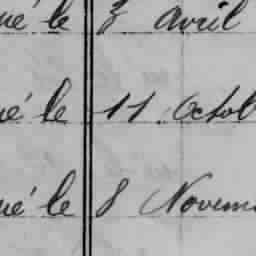 né le 3 avril
né le 11 Octob
né le 8 Novem